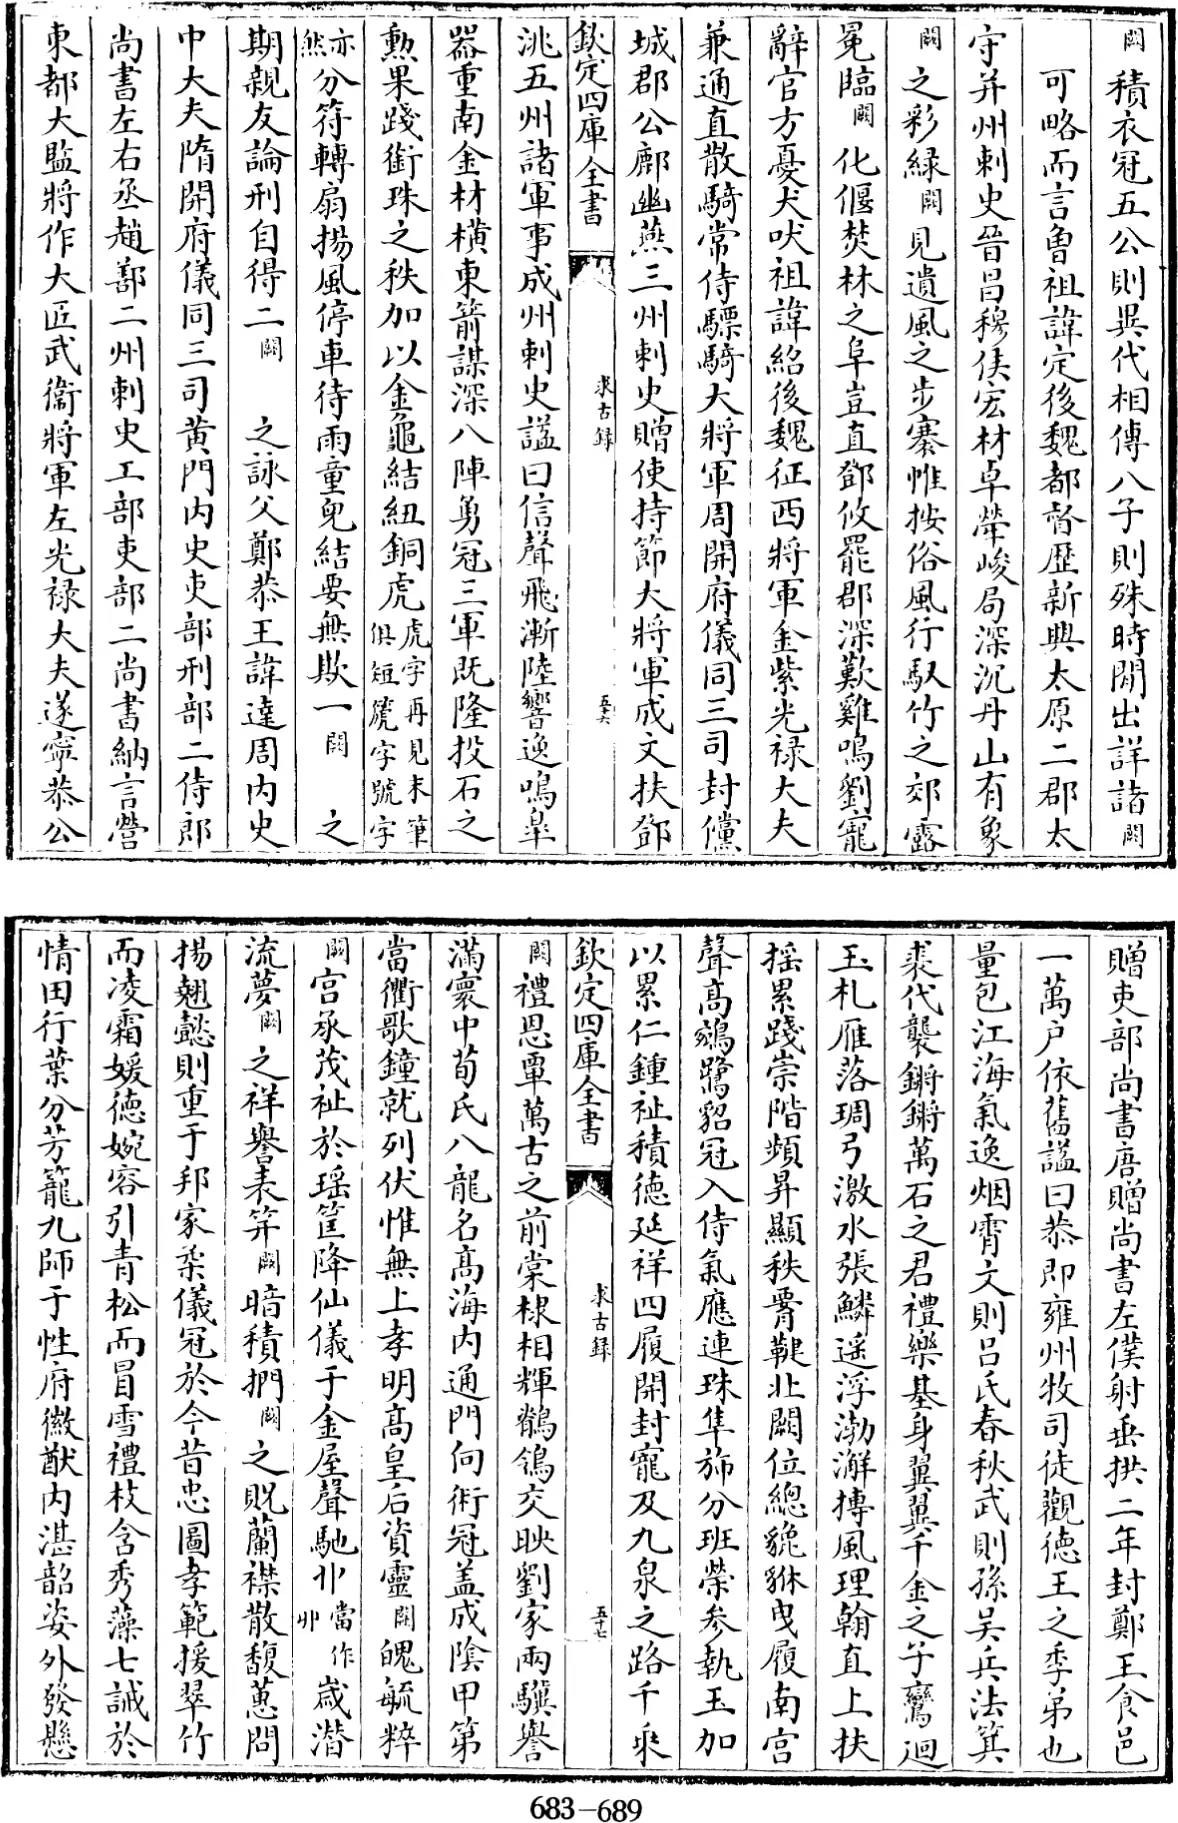 闕積衣冠五公則異代相傳八子則殊時間出詳諸闕
可略而言魯祖諱定後魏都督歷新興太原二郡太
守并州刺史晉昌穆侯宏材卓犖峻局深沉丹山有象
闕之彩緑闕見遺風之步褰帷按俗風行馭竹之郊露
冕臨闕化偃焚林之阜豈直鄧攸罷郡深歎雞鳴劉寵
辭官方憂犬吠祖諱紹後魏征西將軍金紫光禄大夫
兼通直散騎常侍驃騎大將軍周開府儀同三司封儻
城郡公鄜幽燕三州刺史贈使持節大將軍成文扶鄧
欽定四庫全書 求古録 五十六
洮五州諸軍事成州刺史諡曰信聲飛漸陸響逸鳴臯
器重南金材横東箭謀深八陣勇冠三軍既隆投石之
勲果踐銜珠之秩加以金龜結紐銅虎虎字再見末筆俱短虢字號字
亦然分符轉扇揚風停車待雨童兒結要無欺一闕之
期親友論刑自得二闕之詠父鄭恭王諱達周内史
中大夫隋開府儀同三司黄門内史吏部刑部二侍郎
尚書左右丞趙鄯二州刺史工部吏部二尚書納言營
東都大監將作大匠武衛將軍左光禄大夫遂寧恭公
贈吏部尚書唐贈尚書左僕射垂拱二年封鄭王食邑
一萬户依舊諡曰恭即雍州牧司徒觀德王之季弟也
量包江海氣逸烟霄文則吕氏春秋武則孫吴兵法箕
裘代襲鏘鏘萬石之君禮樂基身翼翼千金之子鸞迴
玉札雁落琱弓激水張鱗遥浮渤澥摶風理翰直上扶
摇累踐崇階頻昇顯秩胥鞬北闕位總貔貅曳履南宫
聲高鵷鷺貂冠入侍氣應連珠隼旆分班榮參執玉加
以累仁鍾祉積德延祥四履開封寵及九泉之路千乘
欽定四庫全書 求古録 五十七
闕禮恩覃萬古之前棠棣相輝鶺鴒交映劉家兩驥譽
滿寰中荀氏八龍名高海内通門向術冠蓋成陰甲第
當衢歌鐘就列伏惟無上孝明高皇后資靈闕魄毓粹
闕宫承茂祉於瑶筐降仙儀于金屋聲馳丱當作丱歲潜
流夢闕之祥譽表笄闕暗積捫闕之貺蘭襟散馥蕙問
揚翹懿則重于邦家柔儀冠於今昔忠圖孝範援翠竹
而凌霜媛德婉容引青松而冒雪禮枝含秀藻七誡於
情田行葉分芳籠九師于性府徽猷内湛韶姿外發懸
683-689